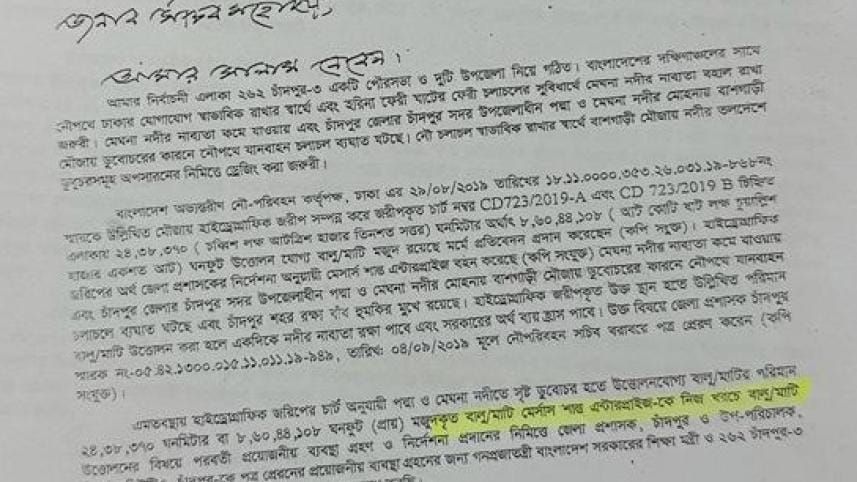 জনাব সচিব মহোদয়,
আমার সালাম নেবেন।
আমার নির্বাচনী এলাকা ২৬২ চাঁদপুর-৩ একটি পৌরসভা ও দুটি উপজেলা নিয়ে গঠিত। বাংলাদেশের দক্ষিণাঞ্চলের সাথে
নৌপথে ঢাকার যোগাযোগ স্বাভাবিক রাখার স্বার্থে এবং হরিনা ফেরী ঘাটের ফেরী চলাচলের সুবিধার্থে মেঘনা নদীর নাব্যতা বহাল রাখা
জরুরী। মেঘনা নদীর নাব্যতা কমে যাওয়ায় এবং চাঁদপুর জেলার চাঁদপুর সদর উপজেলাধীন পদ্মা ও মেঘনা নদীর মোহনায় বাশগাড়ী
মৌজায় ডুবোচরের কারনে নৌপথে যানবাহন চলাচল ব্যাঘাত ঘটছে। নৌ চলাচল স্বাভাবিক রাখার স্বার্থে বাশগাড়ী মৌজায় নদীর তলদেশে
ডুবোচরসমূহ অপসারনের নিমিত্তে ড্রেজিং করা জরুরী।
বাংলাদেশ অভ্যন্তরীণ নৌ-পরিবহন কর্তৃপক্ষ, ঢাকা এর ২৯/০৮/২০১৯ তারিখের ১৮.১১.০০০০.৩৫৩.২৬.০৩১.১৯-৮৬৮নং
স্মারকে উল্লিখিত মৌজায় হাইড্রোগ্রাফিক জরীপ সম্পন্ন করে জরীপকৃত চার্ট নম্বর CD723/2019-A এবং CD 723/2019 B চিহ্নিত
এলাকায় ২৪,৩৮,৩৭০ ( চব্বিশ লক্ষ আটত্রিশ হাজার তিনশত সত্তর) ঘনমিটার অর্থাৎ ৮,৬০,৪৪,১০৮ ( আট কোটি ষাট লক্ষ চুয়াল্লিশ
হাজার একশত আট) ঘনফুট উত্তোলন যোগ্য বালু/মাটি মজুদ রয়েছে মর্মে প্রতিবেদন প্রদান করেছেন (কপি সংযুক্ত)। হাইড্রোগ্রাফিক
জরিপের অর্থ জেলা প্রশাসকের নির্দেশনা অনুযায়ী মেসার্স শান্ত এন্টারপ্রাইজ বহন করেছে (কপি সংযুক্ত) মেঘনা নদীর নাব্যতা কমে যাওয়ায়
এবং চাঁদপুর জেলার চাঁদপুর সদর উপজেলাধীন পদ্মা ও মেঘনা নদীর মোহনায় বাশগাড়ী মৌজায় ডুবোচরের কারনে নৌপথে যানবাহন
চলাচলে ব্যাঘাত ঘটছে এবং চাঁদপুর শহর রক্ষা বাঁধ হুমকির মুখে রয়েছে। হাইড্রোগ্রাফিক জরীপকৃত উক্ত স্থান হতে উল্লিখিত পরিমান
বালু/মাটি উত্তোলন করা হলে একদিকে নদীর নাব্যতা রক্ষা পাবে এবং সরকারের অর্থ ব্যয় হ্রাস পাবে। উক্ত বিষয়ে জেলা প্রশাসক চাঁদপুর
স্মারক নং-০৫.৪২.১৩০০.০১৫.১১.০১১.১৯-৯৪৯, তারিখঃ ০৪/০৯/২০১৯ মূলে নৌপরিবহন সচিব বরাবরে পত্র প্রেরণ করেন (কপি
সংযুক্ত)।
এমতাবস্থায় হাইড্রোগ্রাফিক জরিপের চার্ট অনুযায়ী পদ্মা ও মেঘনা নদীতে সৃষ্ট ডুবোচর হতে উত্তোলনযোগ্য বালু/মাটির পরিমান
২৪,৩৮,৩৭০ ঘনমিটার বা ৮,৬০,৪৪,১০৮ ঘনফুট (প্রায়) মজুদকৃত বালু/মাটি মেসার্স শান্ত এন্টারপ্রাইজ-কে নিজ খরচে বালু/মাটি
উত্তোলনের বিষয়ে পরবর্তী প্রয়োজনীয় ব্যবস্থা গ্রহণ ও নির্দেশনা প্রদানের নিমিত্তে জেলা প্রশাসক, চাঁদপুর ও উপ-পরিচালক,
চাঁদপুর-কে পত্র প্রেরনের প্রয়োজনীয় ব্যবস্থা গ্রহনের জন্য গনপ্রজাতন্ত্রী বাংলাদেশ সরকারের শিক্ষা মন্ত্রী ও ২৬২ চাঁদপুর-৩